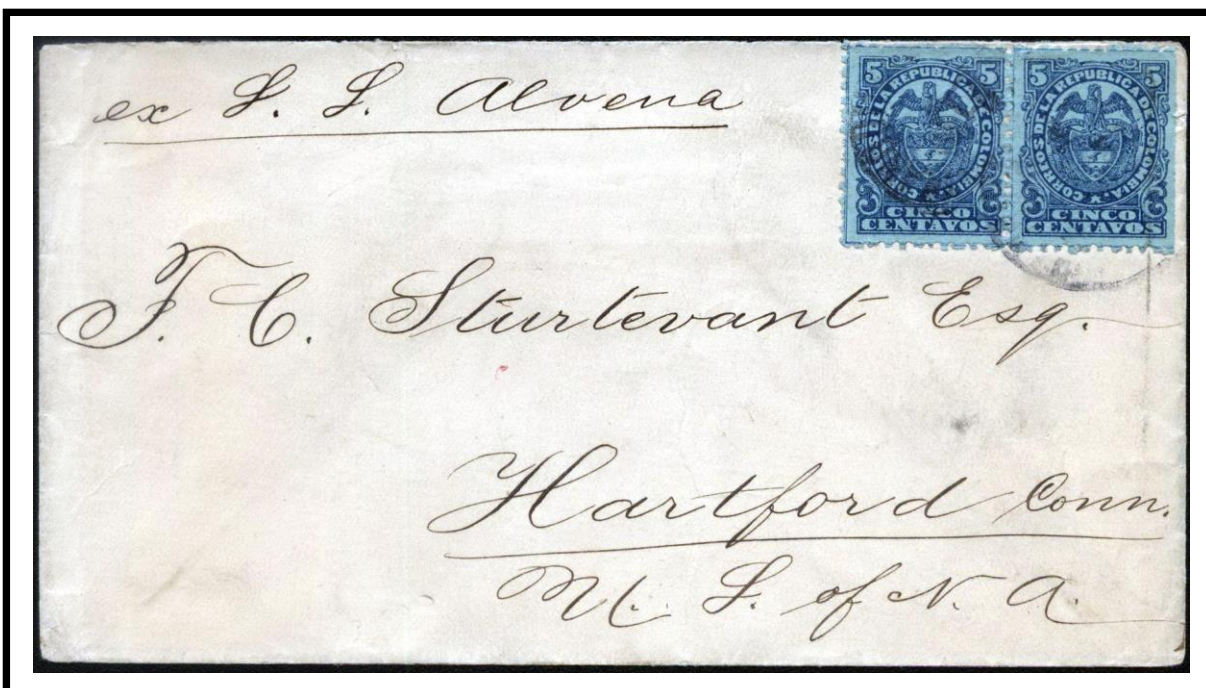 ex S. S. Alvena
5 CORREOS DE LA REPUBLICA DE COLOMBIA 5
CINCO
CENTAVOS
5 CORREOS DE LA REPUBLICA DE COLOMBIA 5
CINCO
CENTAVOS
F. C. Sturtevant Esq.
Hartford Conn.
U. S. of N. A.